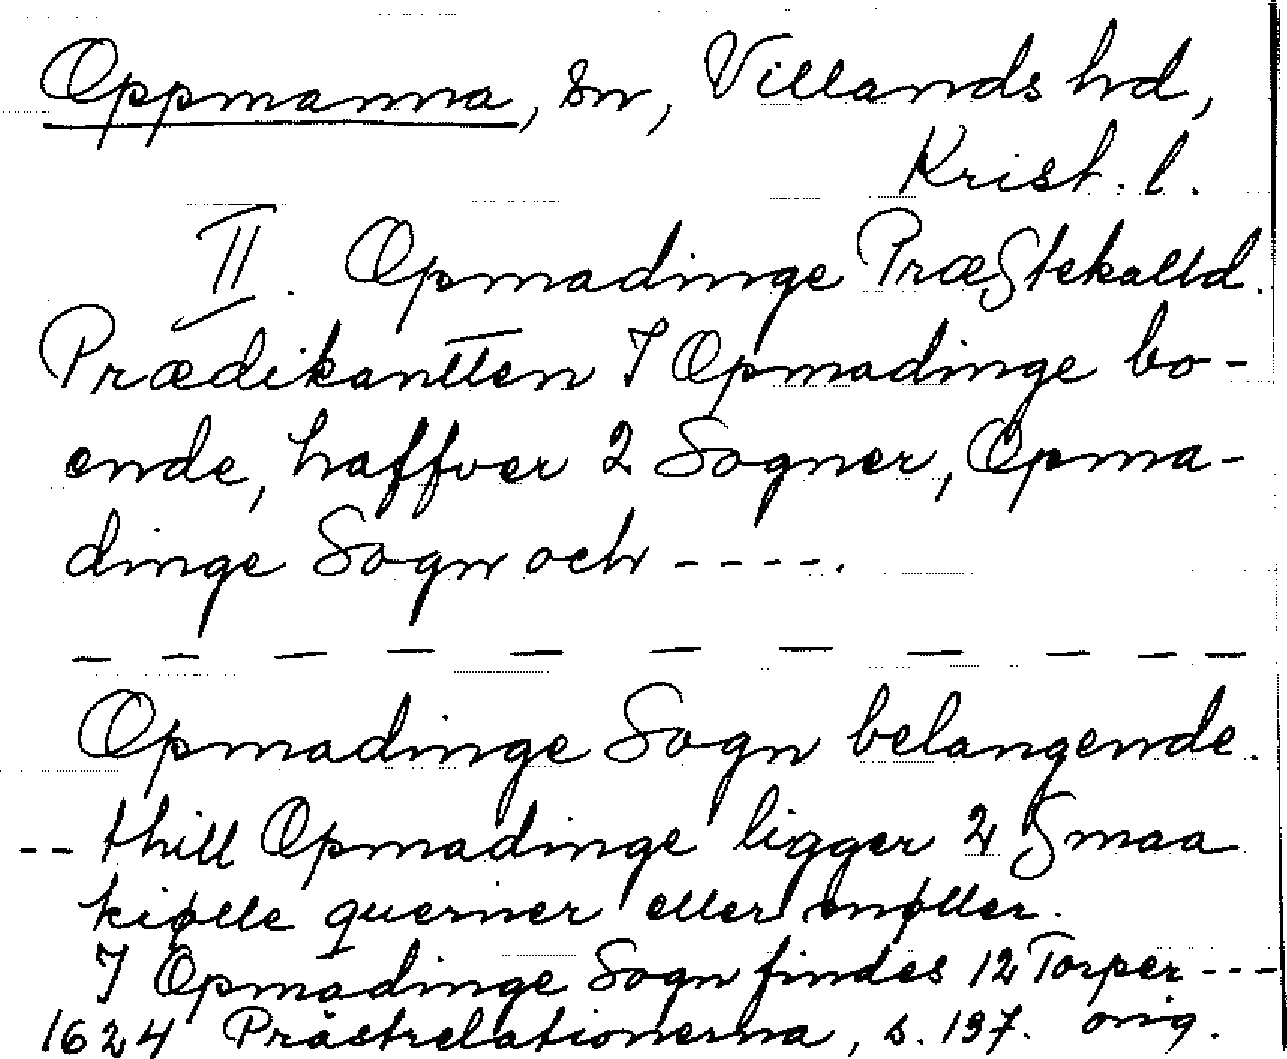 Oppmanna, sn, Villands hd,
Krist. l.
II. Opmadinge Præstekalld.
Prædikantten I Opmadinge bo-
ende, haffver 2 Sogner, Opma-
dinge Sogn och ----.
— — — — — — — — — — —
Opmadinge Sogn belangende.
-- thill Opmadinge ligger 2 Smaa
kiølle querner eller møller.
I Opmadinge Sogn findes 12 Torper ---
1624 Prästrelationerna, s. 197. orig.